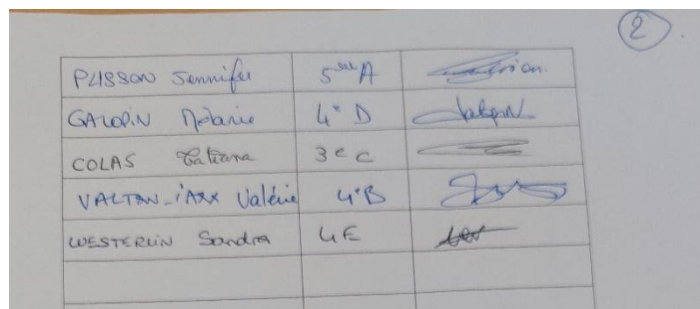 2
PLISSON Jennifer 5ème A
GALOPIN Mélanie 4° D
COLAS Tatiana 3e C
VALTON Valérie 4°B
WESTERLIN Sandra 4E